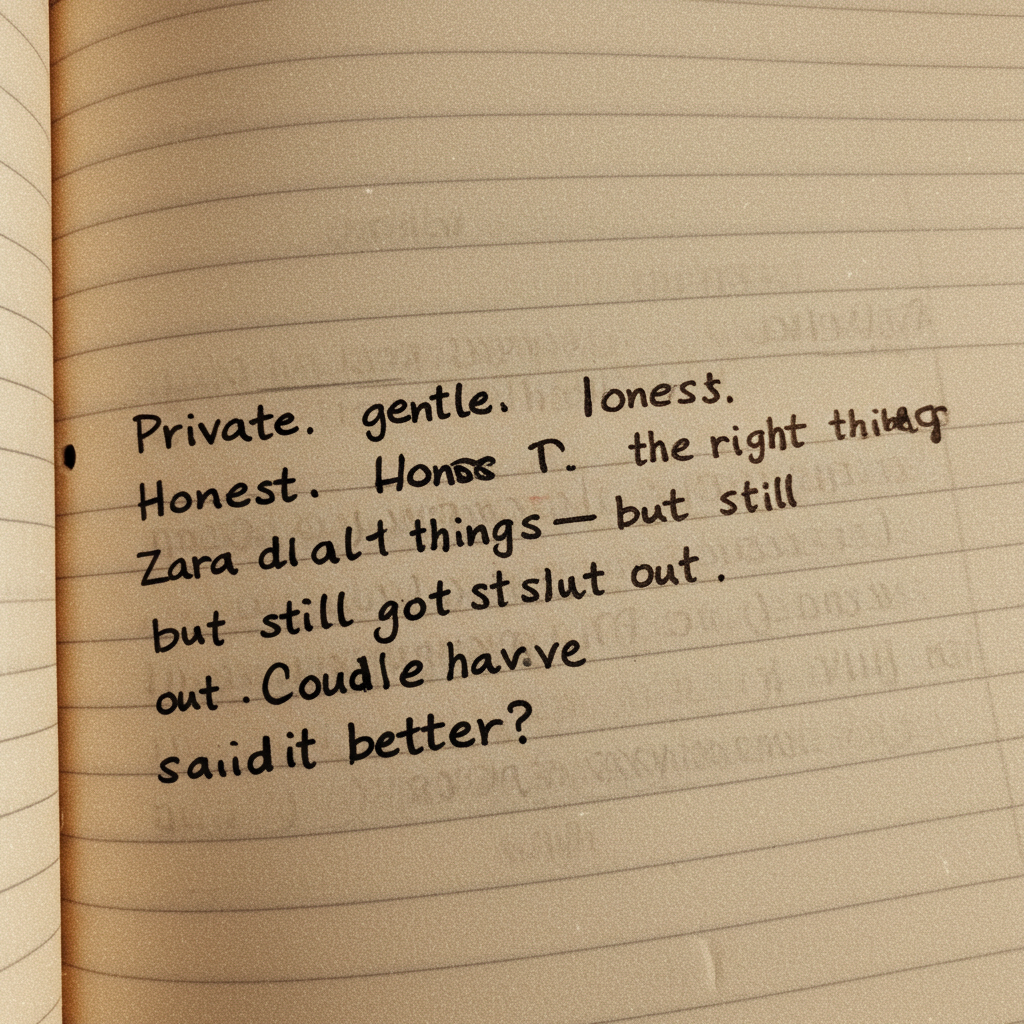 Private. gentle. loness.
Honest. T. the right
Zara dlalt things — but still
but still got stslut out.
out. Coudle havve
saiid it better?